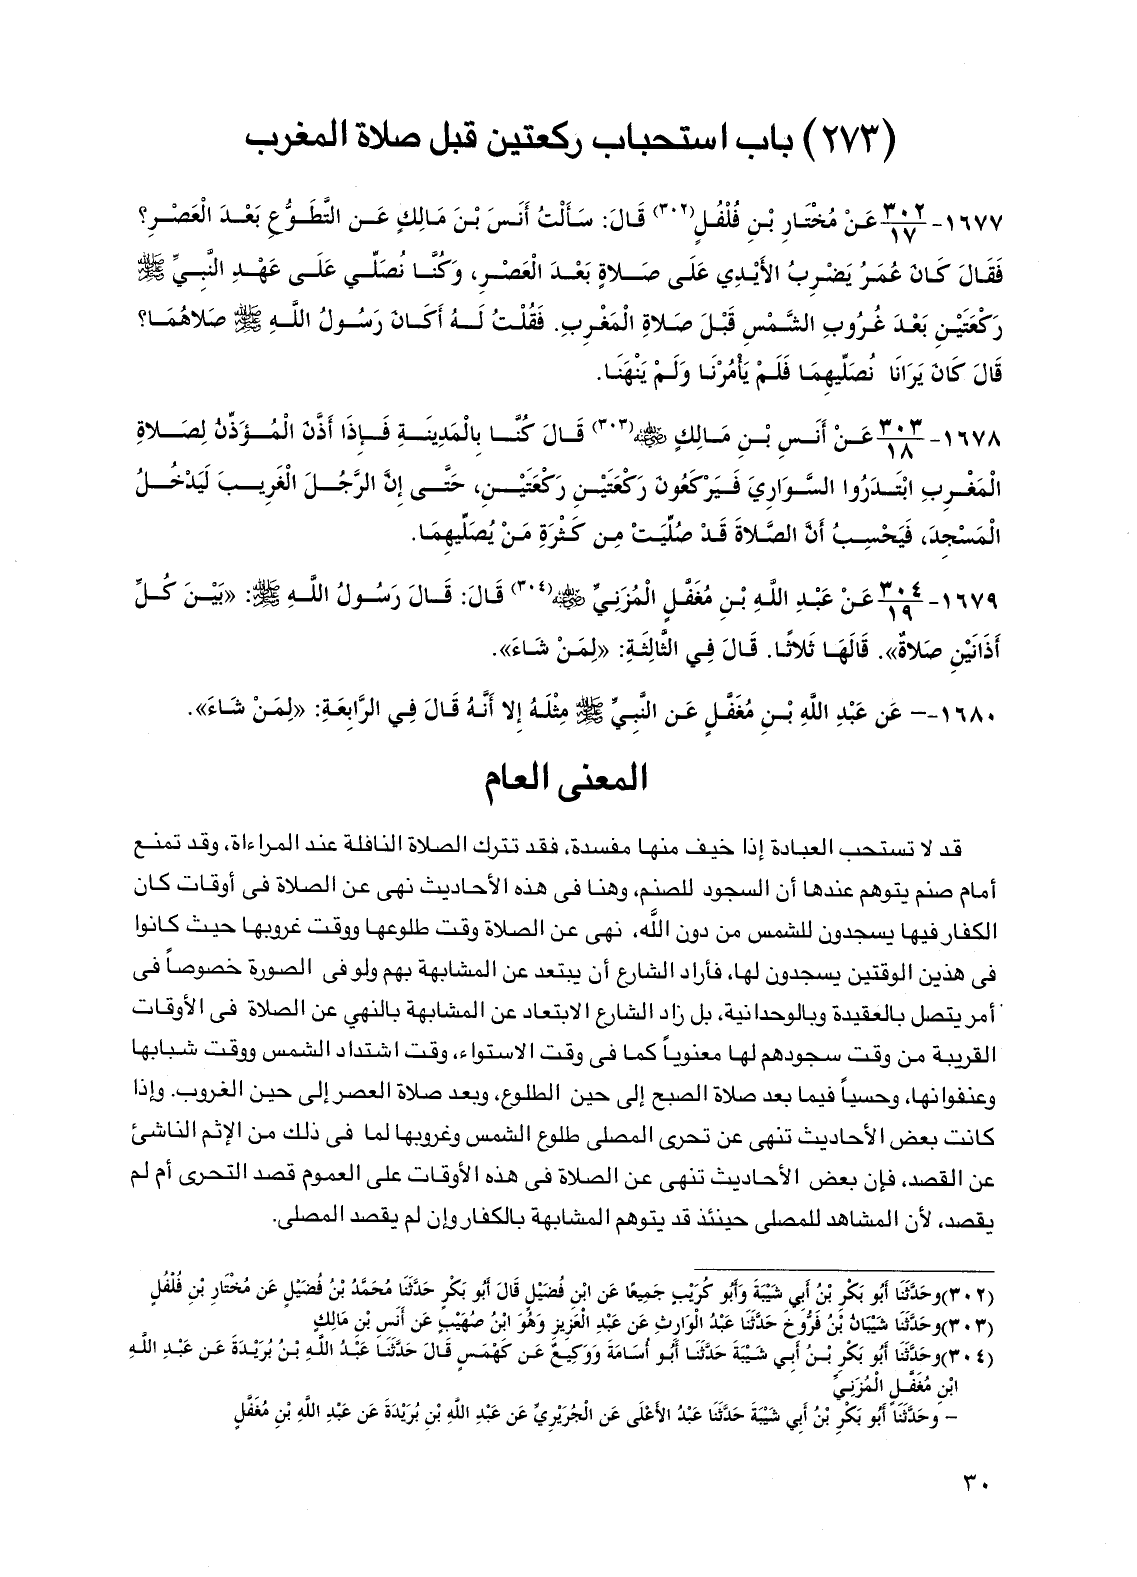 (٢٧٣) باب استحباب ركعتين قبل صلاة المغرب
١٦٧٧- ٣٠٢/١٧ عَنْ مُخْتَارِ بْنِ فُلْفُلٍ(٣٠٢) قَالَ: سَأَلْتُ أَنَسَ بْنَ مَالِكٍ عَنِ التَّطَوُّعِ بَعْدَ الْعَصْرِ؟
فَقَالَ كَانَ عُمَرُ يَضْرِبُ الأَيْدِي عَلَى صَلاةٍ بَعْدَ الْعَصْرِ، وَكُنَّا نُصَلِّي عَلَى عَهْدِ النَّبِيِّ ﷺ
رَكْعَتَيْنِ بَعْدَ غُرُوبِ الشَّمْسِ قَبْلَ صَلاةِ الْمَغْرِبِ. فَقُلْتُ لَهُ أَكَانَ رَسُولُ اللَّهِ ﷺ صَلاهُمَا؟
قَالَ كَانَ يَرَانَا نُصَلِّيهِمَا فَلَمْ يَأْمُرْنَا وَلَمْ يَنْهَنَا.
١٦٧٨- ٣٠٣/١٨ عَنْ أَنَسِ بْنِ مَالِكٍ ﷺ(٣٠٣) قَالَ كُنَّا بِالْمَدِينَةِ فَإِذَا أَذَّنَ الْمُؤَذِّنُ لِصَلاةِ
الْمَغْرِبِ ابْتَدَرُوا السَّوَارِيَ فَيَرْكَعُونَ رَكْعَتَيْنِ رَكْعَتَيْنِ، حَتَّى إِنَّ الرَّجُلَ الْغَرِيبَ لَيَدْخُلُ
الْمَسْجِدَ، فَيَحْسِبُ أَنَّ الصَّلاةَ قَدْ صُلِّيَتْ مِن كَثْرَةِ مَنْ يُصَلِّيهِمَا.
١٦٧٩- ٣٠٤/١٩ عَنْ عَبْدِ اللَّهِ بْنِ مُغَفَّلٍ الْمُزَنِيِّ ﷺ(٣٠٤) قَالَ: قَالَ رَسُولُ اللَّهِ ﷺ: «بَيْنَ كُلِّ
أَذَانَيْنِ صَلاةٌ». قَالَهَا ثَلاثًا. قَالَ فِي الثَّالِثَةِ: «لِمَنْ شَاءَ».
١٦٨٠-– عَن عَبْدِ اللَّهِ بْنِ مُغَفَّلٍ عَنِ النَّبِيِّ ﷺ مِثْلَهُ إِلا أَنَّهُ قَالَ فِي الرَّابِعَةِ: «لِمَنْ شَاءَ».
المعنى العام
قد لا تستحب العبادة إذا خيف منها مفسدة، فقد تترك الصلاة النافلة عند المراءاة، وقد تمنع
أمام صنم يتوهم عندها أن السجود للصنم، وهنا فى هذه الأحاديث نهى عن الصلاة فى أوقات كان
الكفار فيها يسجدون للشمس من دون اللَّه، نهى عن الصلاة وقت طلوعها ووقت غروبها حيث كانوا
فى هذين الوقتين يسجدون لها، فأراد الشارع أن يبتعد عن المشابهة بهم ولو فى الصورة خصوصاً فى
أمر يتصل بالعقيدة وبالوحدانية، بل زاد الشارع الابتعاد عن المشابهة بالنهي عن الصلاة فى الأوقات
القريبة من وقت سجودهم لها معنوياً كما فى وقت الاستواء، وقت اشتداد الشمس ووقت شبابها
وعنفوانها، وحسياً فيما بعد صلاة الصبح إلى حين الطلوع، وبعد صلاة العصر إلى حين الغروب. وإذا
كانت بعض الأحاديث تنهى عن تحرى المصلى طلوع الشمس وغروبها لما فى ذلك من الإثم الناشئ
عن القصد، فإن بعض الأحاديث تنهى عن الصلاة فى هذه الأوقات على العموم قصد التحرى أم لم
يقصد، لأن المشاهد للمصلى حينئذ قد يتوهم المشابهة بالكفار وإن لم يقصد المصلى.
(٣٠٢)وحَدَّثَنَا أَبُو بَكْرِ بْنُ أَبِي شَيْبَةَ وَأَبُو كُرَيْبٍ جَمِيعًا عَن ابْنِ فُضَيْلٍ قَالَ أَبُو بَكْرٍ حَدَّثَنَا مُحَمَّدُ بْنُ فُضَيْلٍ عَن مُخْتَارِ بْنِ فُلْفُلٍ
(٣٠٣)وحَدَّثَنَا شَيْبَانُ بْنُ فَرُّوخَ حَدَّثَنَا عَبْدُ الْوَارِثِ عَن عَبْدِ الْعَزِيزِ وَهُوَ ابْنُ صُهَيْبٍ عَن أَنَسِ بْنِ مَالِكٍ
(٣٠٤)وحَدَّثَنَا أَبُو بَكْرِ بْنُ أَبِي شَيْبَةَ حَدَّثَنَا أَبُو أُسَامَةَ وَوَكِيعٌ عَن كَهْمَسٍ قَالَ حَدَّثَنَا عَبْدُ اللَّهِ بْنُ بُرَيْدَةَ عَن عَبْدِ اللَّهِ
ابْنِ مُغَفَّلٍ الْمُزَنِيِّ
– وحَدَّثَنَا أَبُو بَكْرِ بْنُ أَبِي شَيْبَةَ حَدَّثَنَا عَبْدُ الأَعْلَى عَن الْجُرَيْرِيِّ عَن عَبْدِ اللَّهِ بْنِ بُرَيْدَةَ عَن عَبْدِ اللَّهِ بْنِ مُغَفَّلٍ
٣٠